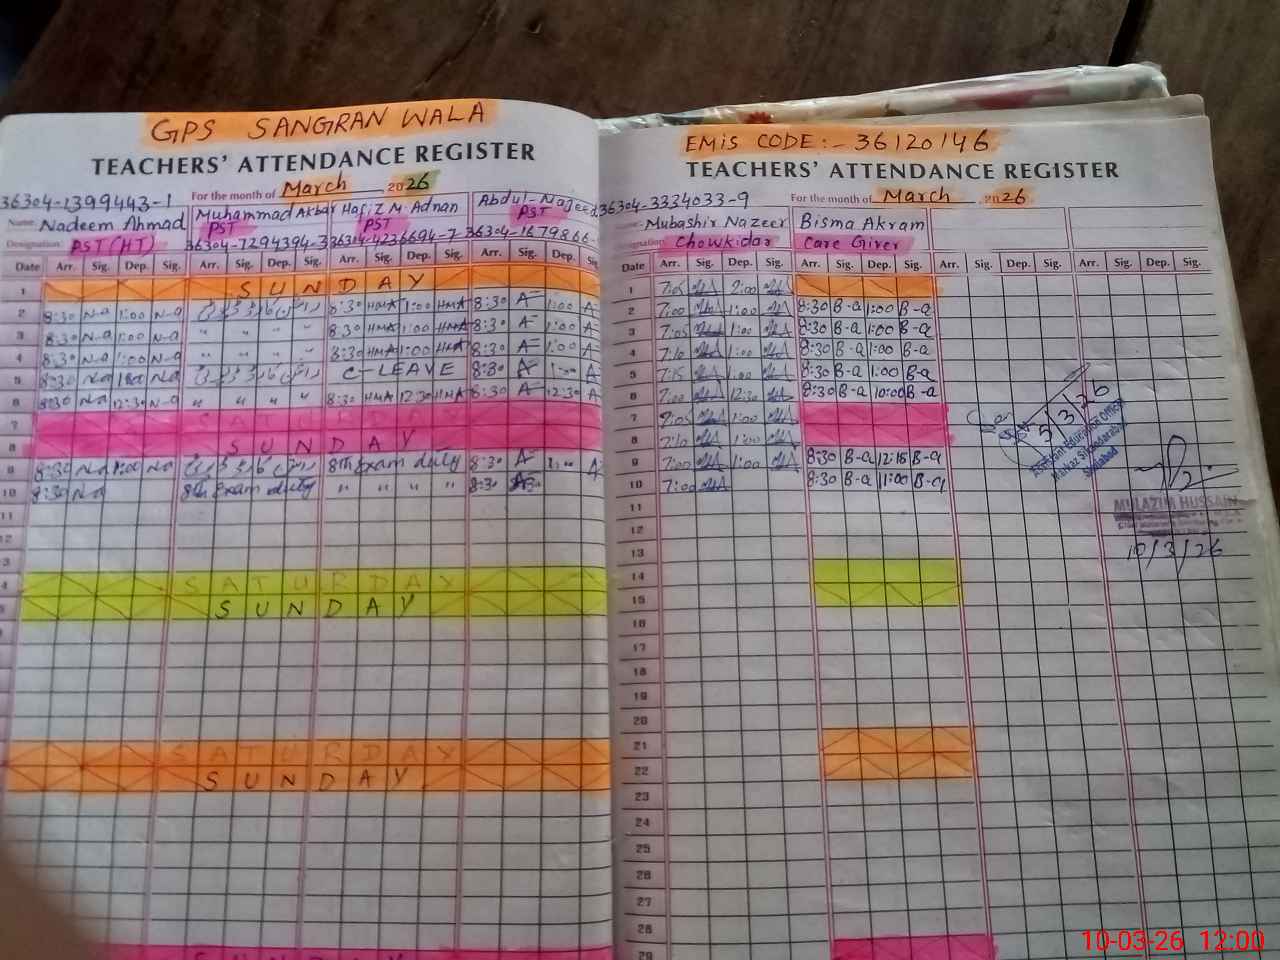 GPS SANGRAN WALA
TEACHERS' ATTENDANCE REGISTER
For the month of March 2026
36304-1399443-1
Name Nadeem Ahmad Muhammad Akbar Hafiz M Adnan Abdul-Majeed
Designation PST (HT) PST PST PST
36304-7294394-3 36304-4236694-7 36304-1679866-
Date Arr. Sig. Dep. Sig. Arr. Sig. Dep. Sig. Arr. Sig. Dep. Sig. Arr. Sig. Dep. Sig.
1 SUNDAY
2 8:30 N-a 1:00 N-a 8:30 HMA 1:00 HMA 8:30 A 1:00 A
3 8:30 N-a 1:00 N-a " " " " 8:30 HMA 1:00 HMA 8:30 A 1:00 A
4 8:30 N-a 1:00 N-a " " " " 8:30 HMA 1:00 HMA 8:30 A 1:00 A
5 8:30 N-a N-a C-LEAVE 8:30 A
6 8:30 N-a 12:30 N-a " " " " 8:30 HMA 12:30 HMA 8:30 A 12:30 A
7 SATURDAY
8 SUNDAY
9 8:30 N-a 1:00 N-a 8th Exam duty 8:30 A A
10 8:30 N-a 8th Exam duty " " " " 8:30
11
12
13
4 SATURDAY
5 SUNDAY
SATURDAY
SUNDAY
EMIS CODE:- 36120146
TEACHERS' ATTENDANCE REGISTER
36304-3334033-9 For the month of March 2026
Mubashir Nazeer Bisma Akram
Designation Chowkidar Care Giver
Date Arr. Sig. Dep. Sig. Arr. Sig. Dep. Sig. Arr. Sig. Dep. Sig. Arr. Sig. Dep. Sig.
1 7:05 2:00
2 7:00 1:00 8:30 B-a 1:00 B-a
3 7:05 1:00 8:30 B-a 1:00 B-a
4 7:10 1:00 8:30 B-a 1:00 B-a
5 7:15 1:00 8:30 B-a 1:00 B-a
6 7:00 12:30 8:30 B-a 10:00 B-a
7 7:05 1:00
8 7:10 1:00
9 7:00 1:00 8:30 B-a 12:15 B-a
10 7:00 8:30 B-a 11:00 B-a
11
12
13
14
15
16
17
18
19
20
21
22
23
24
25
26
27
28
29
Assistant Education Officer
Markaz Sikandarabad
MULAZIM HUSSAIN
10/3/26
10-03-26 12:00